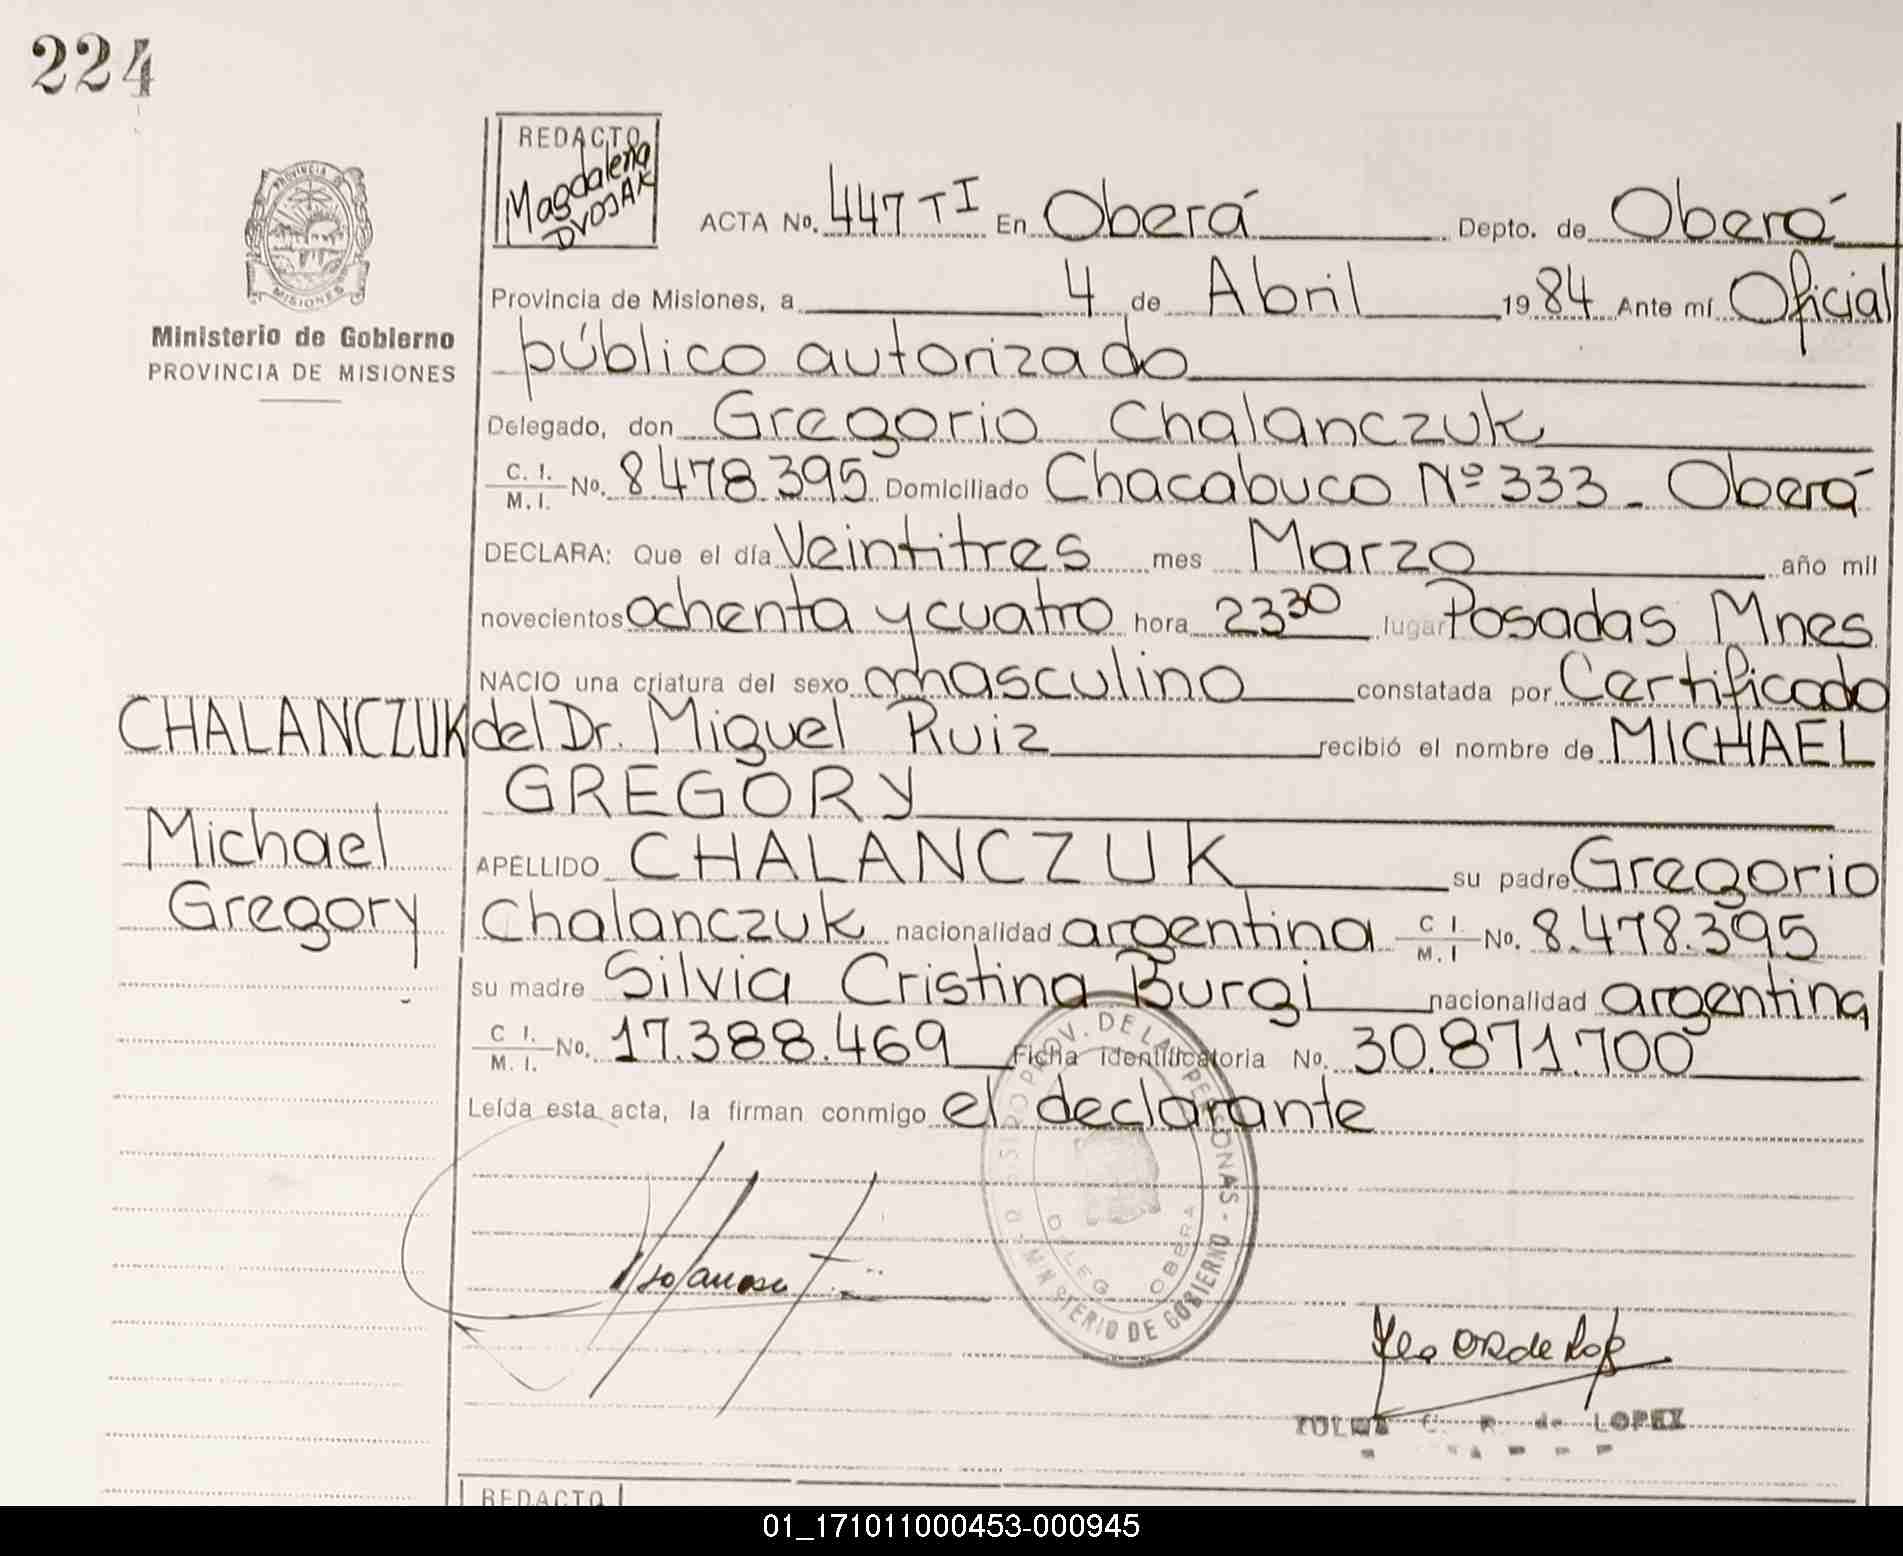 224
REDACTO
Magdalena
DVOJAK
ACTA No. 447 TI En Oberá Depto. de Oberá
PROVINCIA DE
MISIONES
Provincia de Misiones, a 4 de Abril 1984 Ante mí Oficial
Ministerio de Gobierno
PROVINCIA DE MISIONES
público autorizado
Delegado, don Gregorio Chalanczuk
C. I. M. I. No. 8478.395 Domiciliado Chacabuco Nº 333 - Oberá
DECLARA: Que el día Veintitres mes Marzo año mil
novecientos ochenta y cuatro hora 23 30 lugar Posadas Mnes
NACIO una criatura del sexo masculino constatada por Certificado
CHALANCZUK del Dr. Miguel Ruiz recibió el nombre de MICHAEL
GREGORY
Michael
APELLIDO CHALANCZUK su padre Gregorio
Gregory
Chalanczuk nacionalidad argentina C I. M. I No. 8.478.395
su madre Silvia Cristina Burgi nacionalidad argentina
C I. M. I. No. 17.388.469 Ficha identificatoria No. 30.871.700
Leída esta acta, la firman conmigo el declarante
PROV. DE LAS PERSONAS - MINISTERIO DE GOBIERNO
DELEG OBERA
C. R. de LOPEZ
REDACTO
01_171011000453-000945